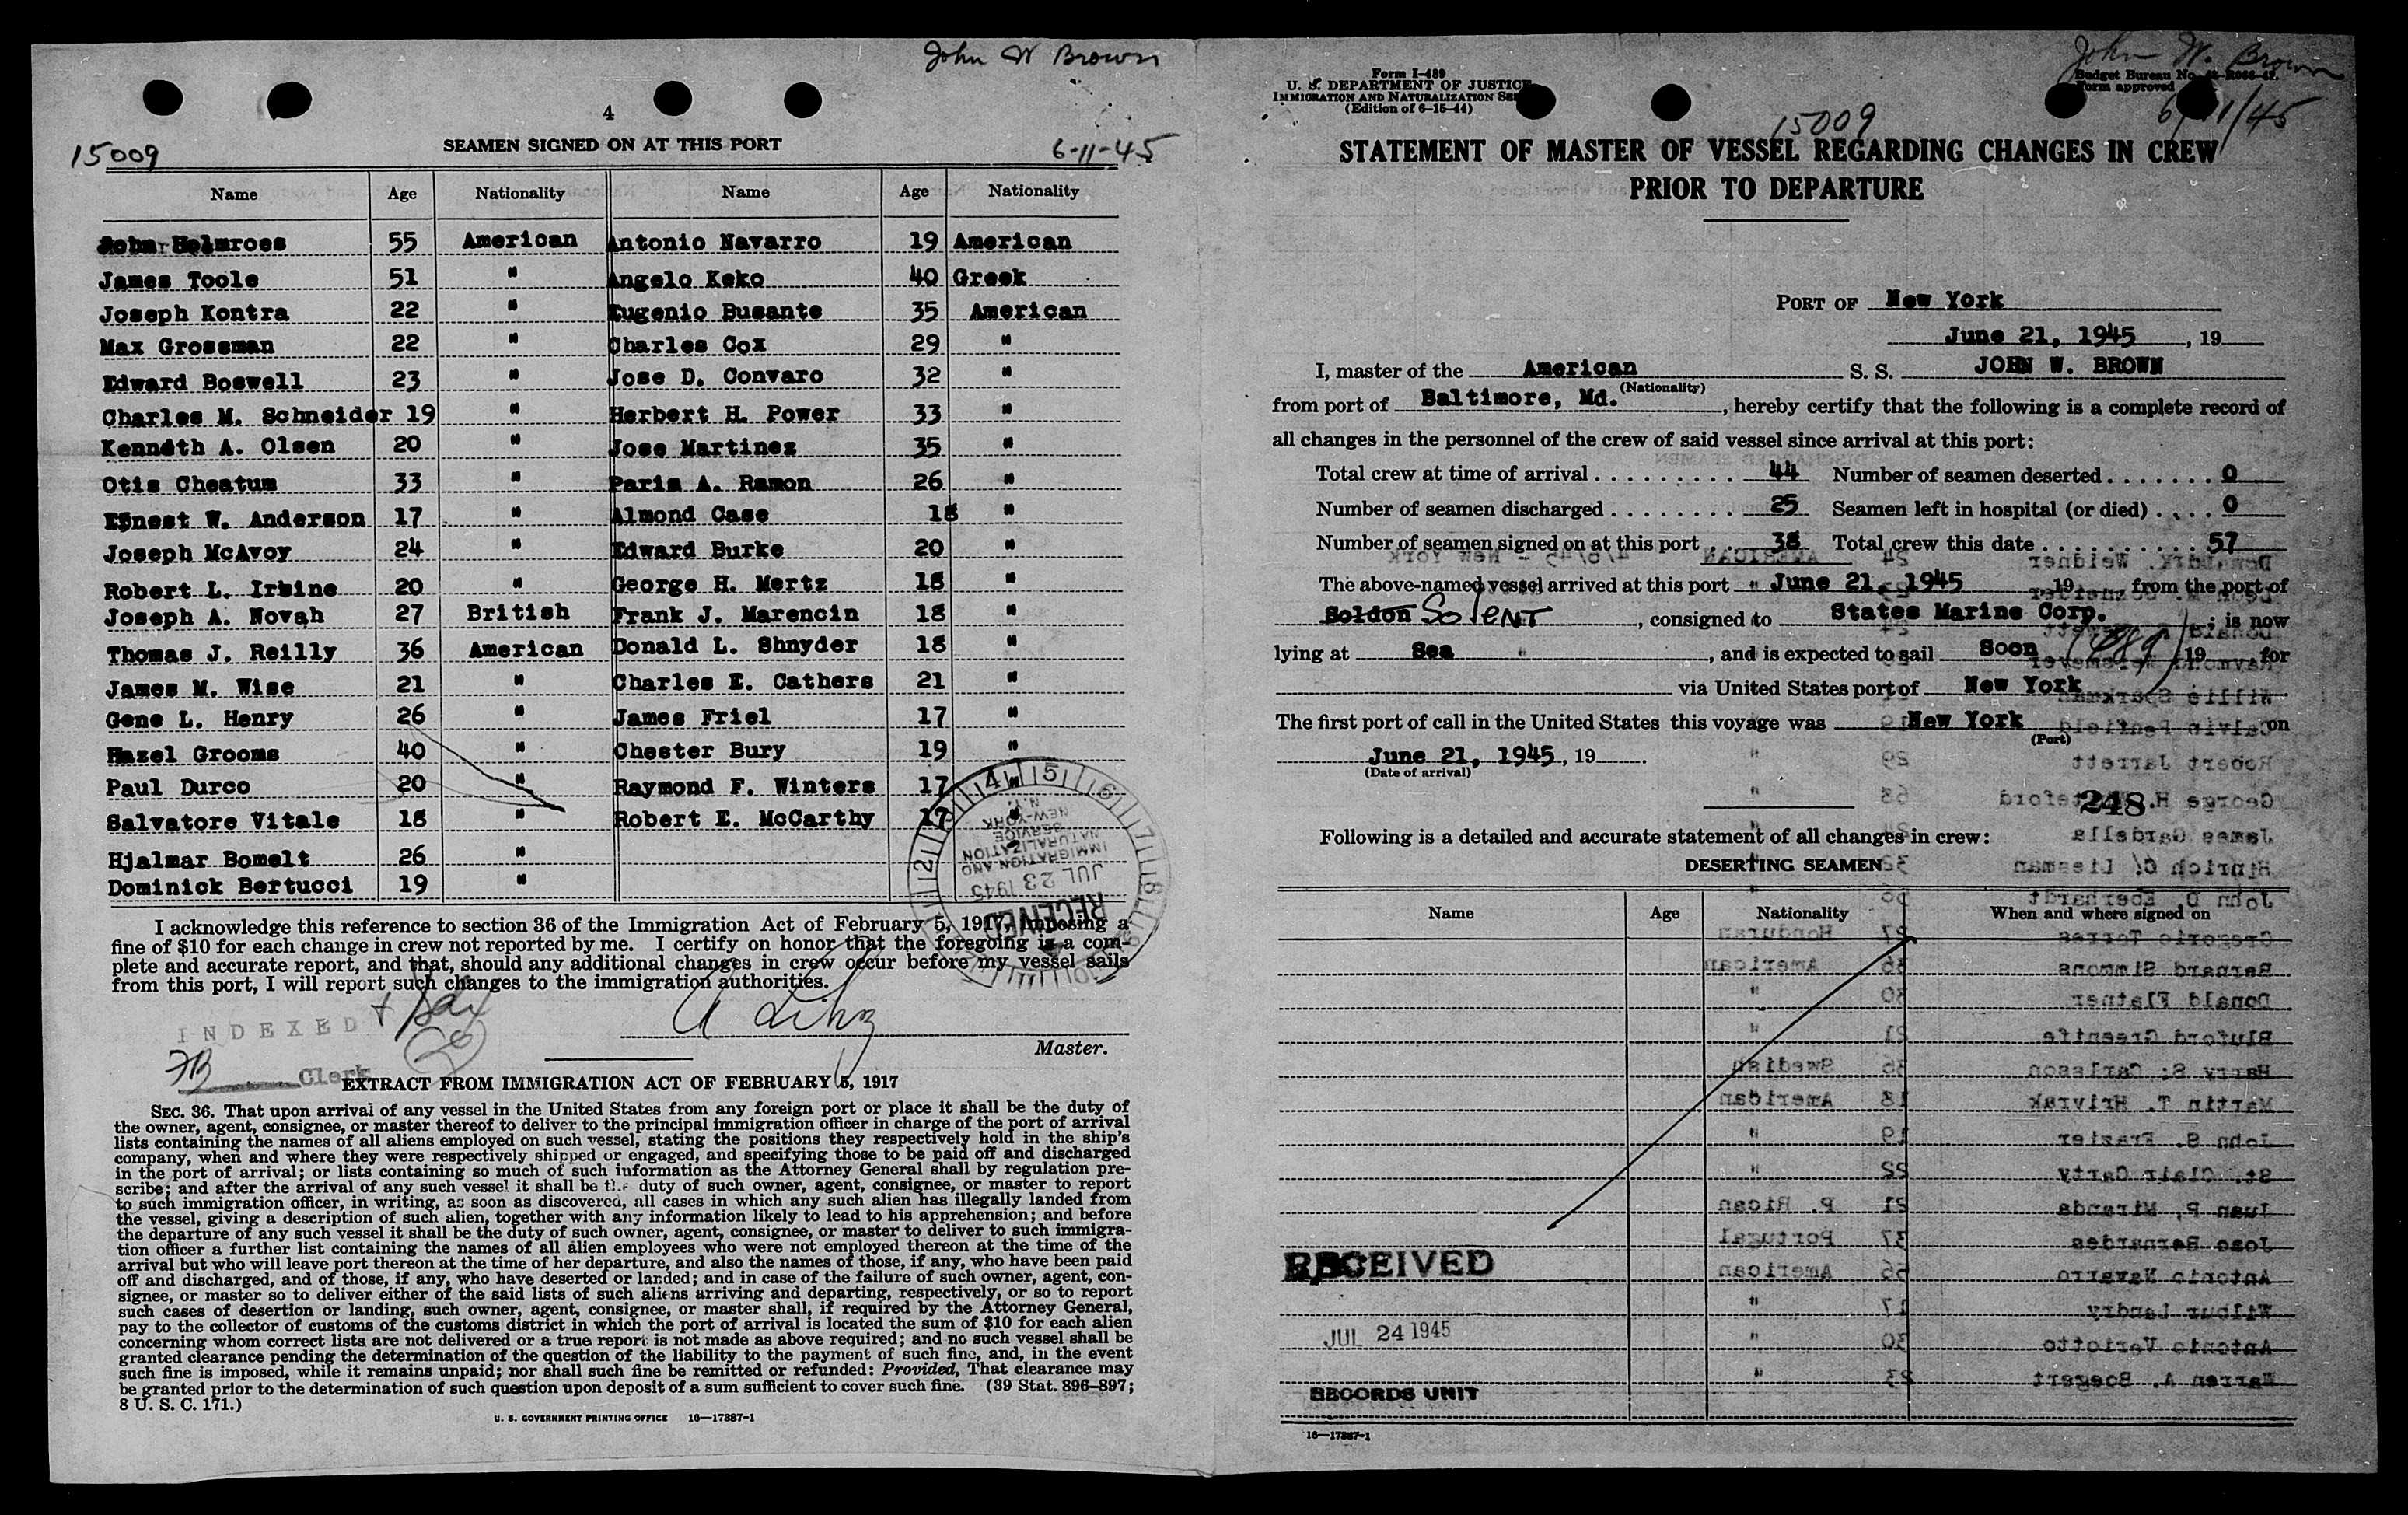 John W Brown
4
15009
SEAMEN SIGNED ON AT THIS PORT
6-11-45
Name Age Nationality Name Age Nationality
Helmroos 55 American Antonio Navarro 19 American
James Toole 51 " Angelo Keko 40 Greek
Joseph Kontra 22 " Eugenio Busante 35 American
Max Grossman 22 " Charles Cox 29 "
Edward Boswell 23 " Jose D. Convaro 32 "
Charles M. Schneider 19 " Herbert H. Power 33 "
Kenneth A. Olsen 20 " Jose Martinez 35 "
Otis Cheatum 33 " Paris A. Ramon 26 "
Ernest W. Anderson 17 " Almond Case 18 "
Joseph McAvoy 24 " Edward Burke 20 "
Robert L. Irbine 20 " George H. Mertz 18 "
Joseph A. Novah 27 British Frank J. Marencin 18 "
Thomas J. Reilly 36 American Donald L. Shnyder 18 "
James M. Wise 21 " Charles E. Cathers 21 "
Gene L. Henry 26 " James Friel 17 "
Hazel Grooms 40 " Chester Bury 19 "
Paul Durco 20 " Raymond F. Winters 17 "
Salvatore Vitale 18 " Robert E. McCarthy 17 "
Hjalmar Bomelt 26 "
Dominick Bertucci 19 "
RECEIVED
JUL 23 1945
IMMIGRATION AND
NATURALIZATION
SERVICE
NEW-YORK
N.Y.
I acknowledge this reference to section 36 of the Immigration Act of February 5, 1917, imposing a
fine of $10 for each change in crew not reported by me. I certify on honor that the foregoing is a com-
plete and accurate report, and that, should any additional changes in crew occur before my vessel sails
from this port, I will report such changes to the immigration authorities.
INDEXED
Master.
FB Clerk
EXTRACT FROM IMMIGRATION ACT OF FEBRUARY 5, 1917
SEC. 36. That upon arrival of any vessel in the United States from any foreign port or place it shall be the duty of
the owner, agent, consignee, or master thereof to deliver to the principal immigration officer in charge of the port of arrival
lists containing the names of all aliens employed on such vessel, stating the positions they respectively hold in the ship's
company, when and where they were respectively shipped or engaged, and specifying those to be paid off and discharged
in the port of arrival; or lists containing so much of such information as the Attorney General shall by regulation pre-
scribe; and after the arrival of any such vessel it shall be the duty of such owner, agent, consignee, or master to report
to such immigration officer, in writing, as soon as discovered, all cases in which any such alien has illegally landed from
the vessel, giving a description of such alien, together with any information likely to lead to his apprehension; and before
the departure of any such vessel it shall be the duty of such owner, agent, consignee, or master to deliver to such immigra-
tion officer a further list containing the names of all alien employees who were not employed thereon at the time of the
arrival but who will leave port thereon at the time of her departure, and also the names of those, if any, who have been paid
off and discharged, and of those, if any, who have deserted or landed; and in case of the failure of such owner, agent, con-
signee, or master so to deliver either of the said lists of such aliens arriving and departing, respectively, or so to report
such cases of desertion or landing, such owner, agent, consignee, or master shall, if required by the Attorney General,
pay to the collector of customs of the customs district in which the port of arrival is located the sum of $10 for each alien
concerning whom correct lists are not delivered or a true report is not made as above required; and no such vessel shall be
granted clearance pending the determination of the question of the liability to the payment of such fine, and, in the event
such fine is imposed, while it remains unpaid; nor shall such fine be remitted or refunded: Provided, That clearance may
be granted prior to the determination of such question upon deposit of a sum sufficient to cover such fine. (39 Stat. 896–897;
8 U. S. C. 171.)
U. S. GOVERNMENT PRINTING OFFICE 16—17887-1
John W. Brown
Form I-489
U. S. DEPARTMENT OF JUSTICE
IMMIGRATION AND NATURALIZATION
(Edition of 6-15-44)
Budget Bureau No.
Form approved
6/11/45
15009
STATEMENT OF MASTER OF VESSEL REGARDING CHANGES IN CREW
PRIOR TO DEPARTURE
PORT OF New York
June 21, 1945, 19
I, master of the American S. S. JOHN W. BROWN
(Nationality)
from port of Baltimore, Md., hereby certify that the following is a complete record of
all changes in the personnel of the crew of said vessel since arrival at this port:
Total crew at time of arrival 44 Number of seamen deserted 0
Number of seamen discharged 25 Seamen left in hospital (or died) 0
Number of seamen signed on at this port 38 Total crew this date 57
The above-named vessel arrived at this port June 21, 1945 19 from the port of
Soldon Solent, consigned to States Marine Corp.; is now
lying at Sea, and is expected to sail Soon 19 for
via United States port of New York
The first port of call in the United States this voyage was New York on
(Port)
June 21, 1945, 19
(Date of arrival)
248
Following is a detailed and accurate statement of all changes in crew:
DESERTING SEAMEN
Name Age Nationality When and where signed on
RECEIVED
JUL 24 1945
RECORDS UNIT
16—17887-1